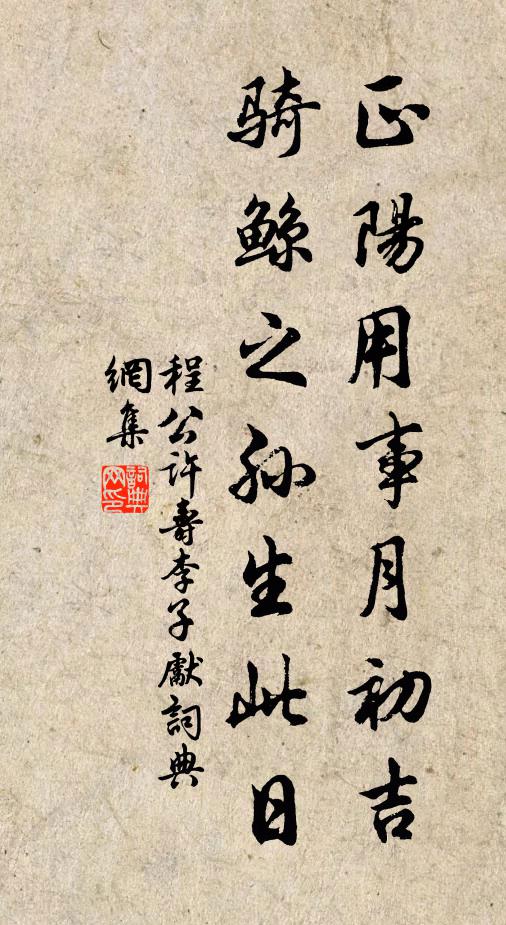 正陽用事月初吉
騎鯨之孫生此日
程公許壽李子獻詞典
網集
詞典網印